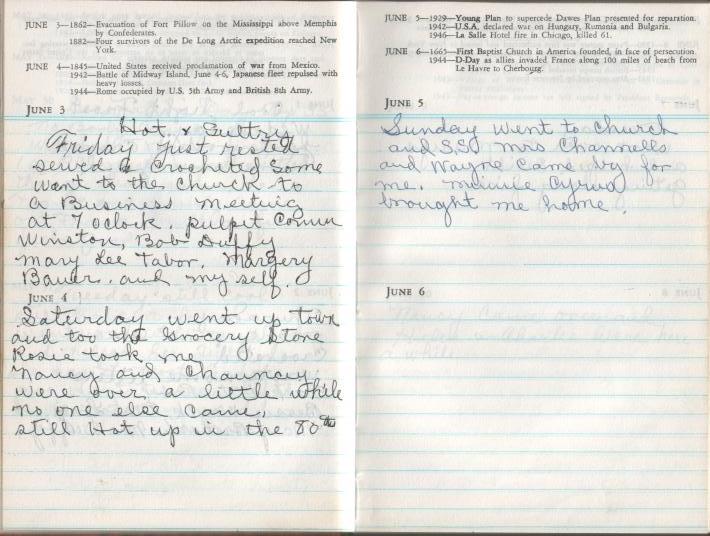 JUNE 3—1862—Evacuation of Fort Pillow on the Mississippi above Memphis
by Confederates.
1882—Four survivors of the De Long Arctic expedition reached New
York.
JUNE 4—1845—United States received proclamation of war from Mexico.
1942—Battle of Midway Island, June 4-6, Japanese fleet repulsed with
heavy losses.
1944—Rome occupied by U.S. 5th Army and British 8th Army.
JUNE 3
Hot. & Sultry
Friday just rested
sewed & Crocheted Some
went to the church to
a Business meeting
at 7 oclock. pulpit Comm
Winston, Bob Duffy
Mary Lee Tabor. Margery
Bauer. and my self.
JUNE 4
Saturday went up town
and too the Grocery Stone
Rosie took me
Nancy and Chauncey
were over a little while
no one else came,
still Hot up in the 80ths
JUNE 5—1929—Young Plan to supercede Dawes Plan presented for reparation.
1942—U.S.A. declared war on Hungary, Rumania and Bulgaria.
1946—La Salle Hotel fire in Chicago, killed 61.
JUNE 6—1665—First Baptist Church in America founded, in face of persecution.
1944—D-Day as allies invaded France along 100 miles of beach from
Le Havre to Cherbourg.
JUNE 5
Sunday went to church
and S.S. Mrs Channells
and Wayne Came by for
me. Minnie Cyrus
brought me home.
JUNE 6